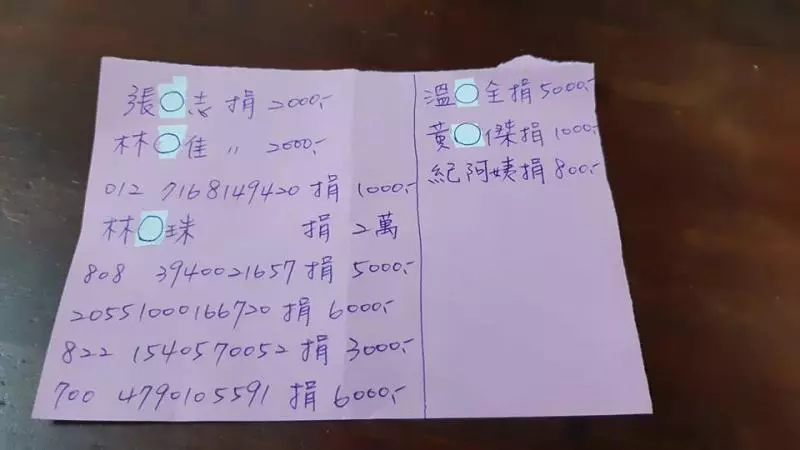 張○志 捐 2000,-
林○佳 〃 2000,-
012 7168149420 捐 1000,-
林○珠 捐 2萬
808 3940021657 捐 5000,-
20551000166720 捐 6000,-
822 1540570052 捐 3000,-
700 4790105591 捐 6000,-
溫○全捐5000,-
黃○傑捐1000,-
紀阿姨捐800,-